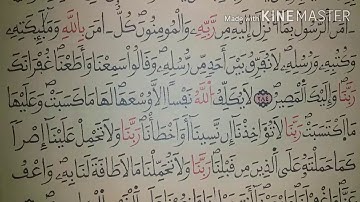 Made with KINEMASTER
ءَامَنَ ٱلرَّسُولُ بِمَآ أُنزِلَ إِلَيْهِ مِن رَّبِّهِۦ وَٱلْمُؤْمِنُونَ كُلٌّ ءَامَنَ بِٱللَّهِ وَمَلَٰٓئِكَتِهِۦ
وَكُتُبِهِۦ وَرُسُلِهِۦ لَا نُفَرِّقُ بَيْنَ أَحَدٍ مِّن رُّسُلِهِۦ وَقَالُوا۟ سَمِعْنَا وَأَطَعْنَا غُفْرَانَكَ
رَبَّنَا وَإِلَيْكَ ٱلْمَصِيرُ ٢٨٤ لَا يُكَلِّفُ ٱللَّهُ نَفْسًا إِلَّا وُسْعَهَا لَهَا مَا كَسَبَتْ وَعَلَيْهَا
مَا ٱكْتَسَبَتْ رَبَّنَا لَا تُؤَاخِذْنَآ إِن نَّسِينَآ أَوْ أَخْطَأْنَا رَبَّنَا وَلَا تَحْمِلْ عَلَيْنَآ إِصْرًا
كَمَا حَمَلْتَهُۥ عَلَى ٱلَّذِينَ مِن قَبْلِنَا رَبَّنَا وَلَا تُحَمِّلْنَا مَا لَا طَاقَةَ لَنَا بِهِۦ وَٱعْفُ